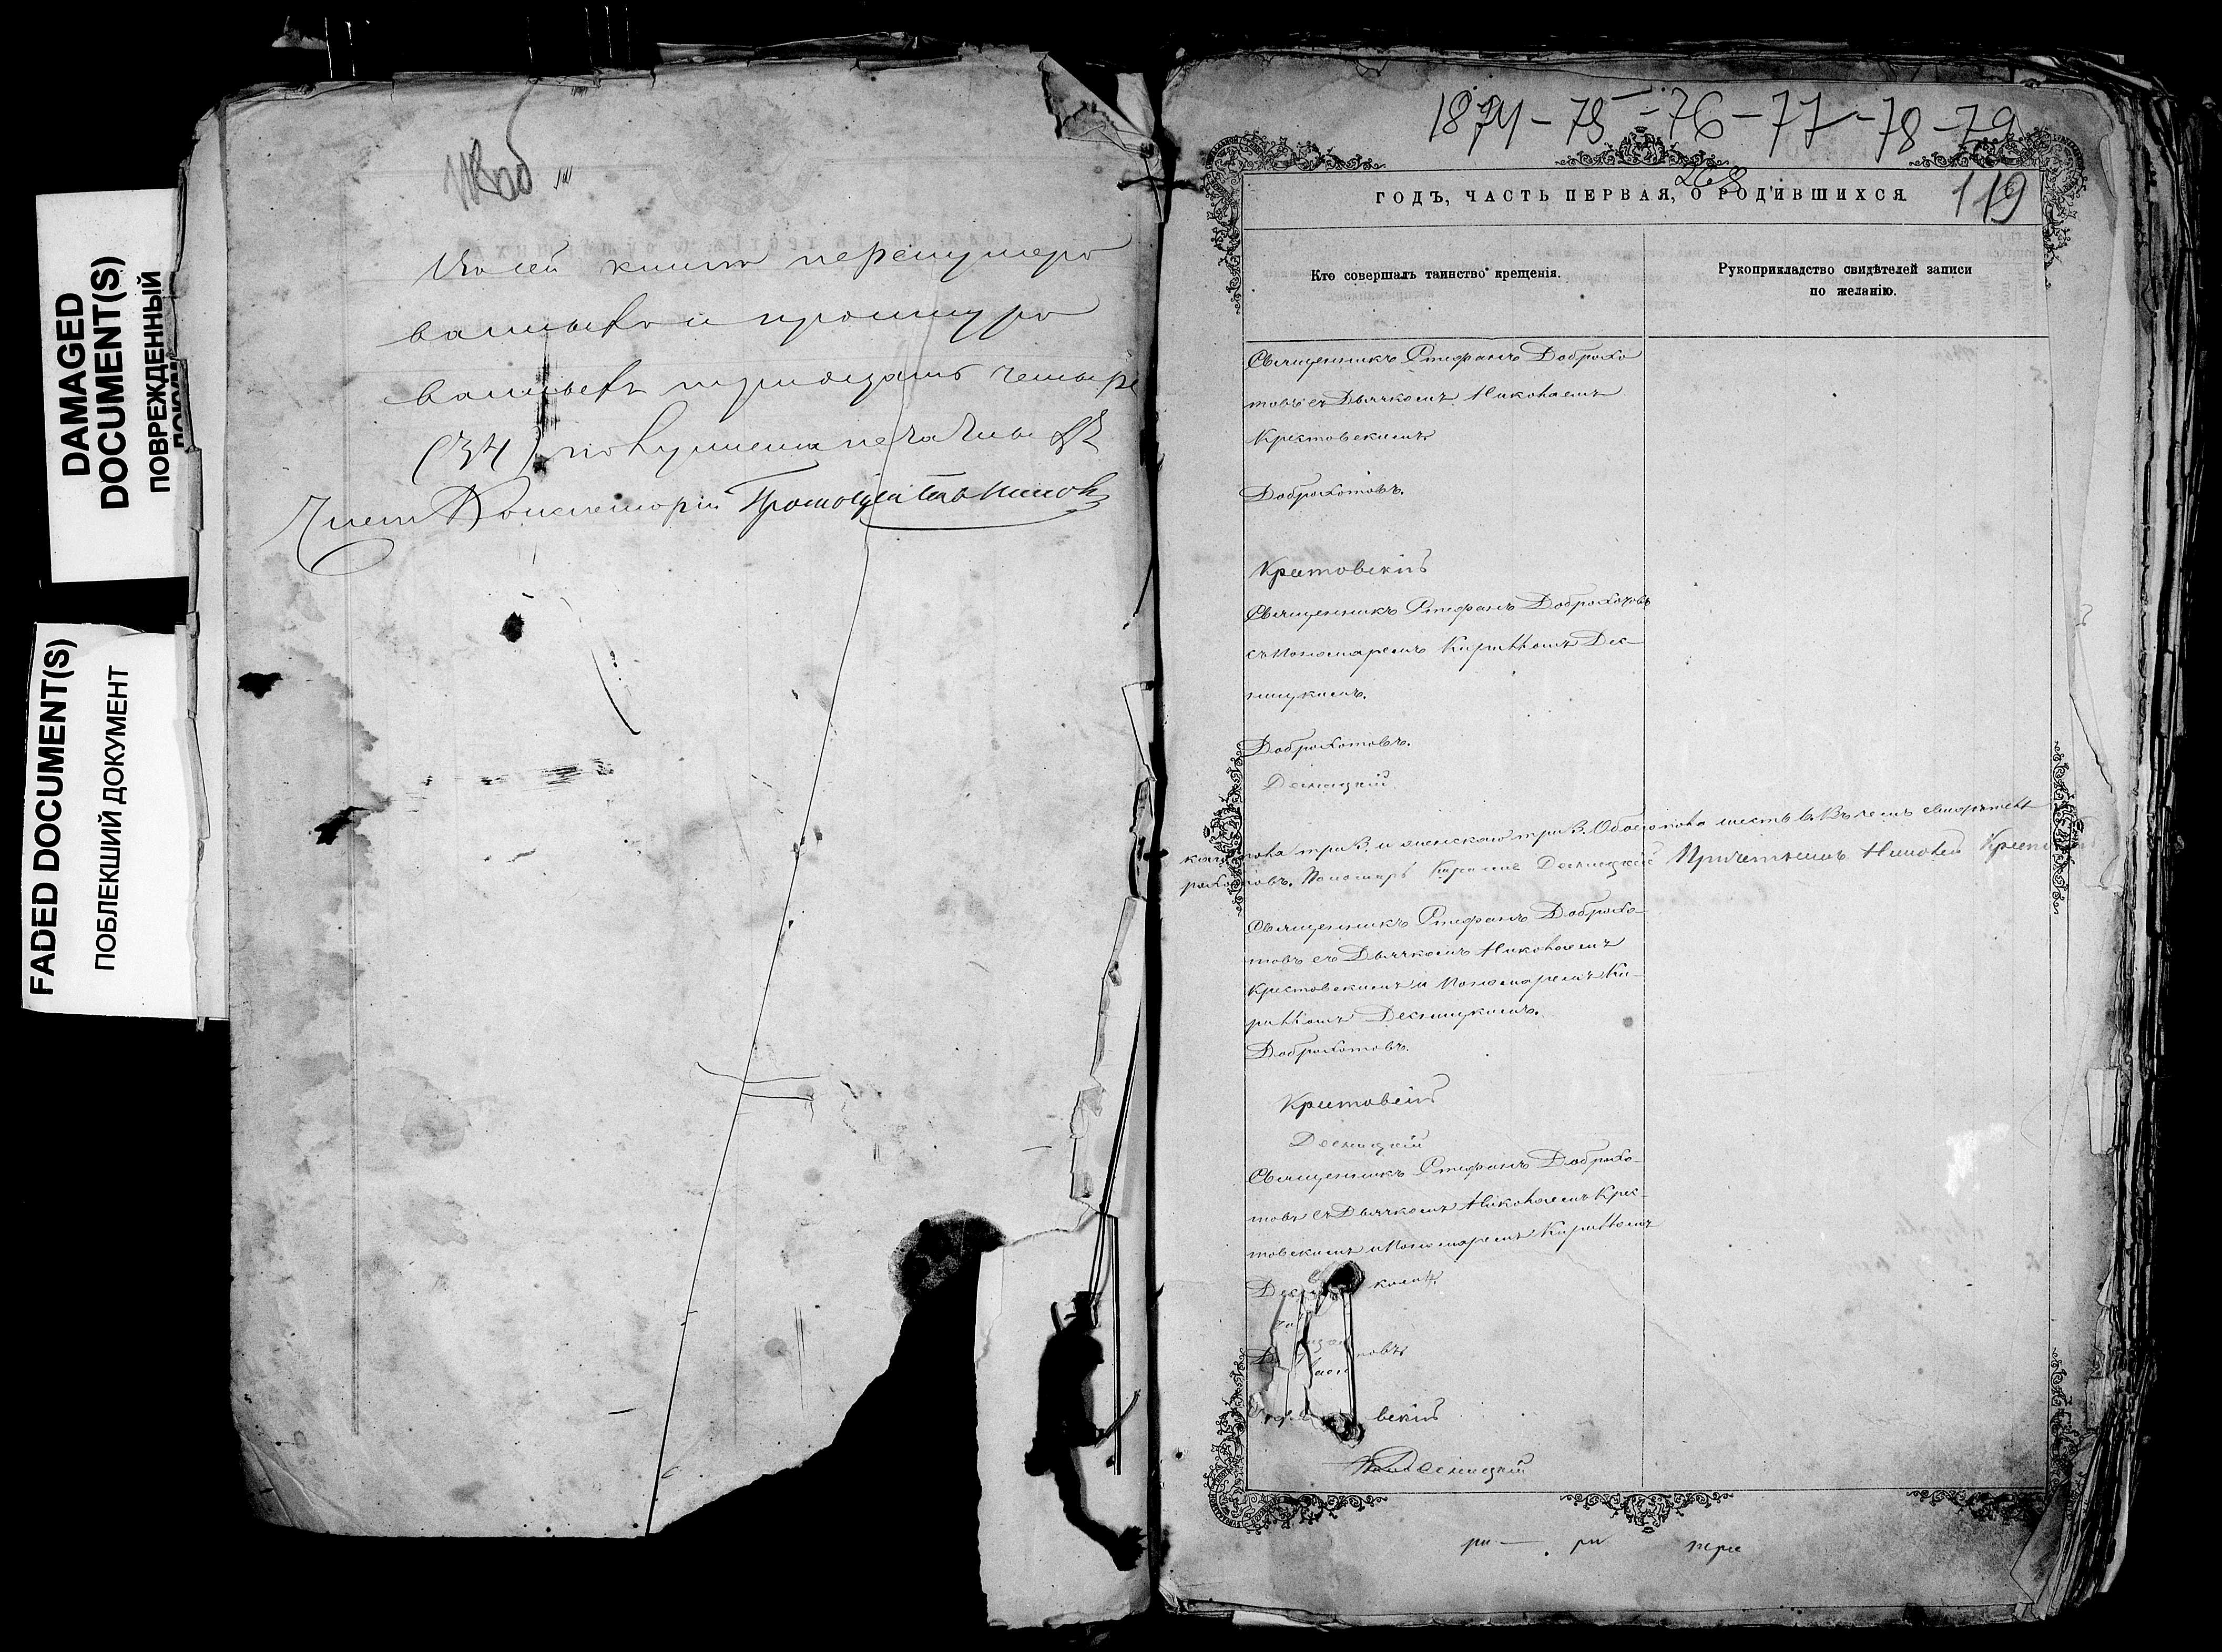 DAMAGED
DOCUMENT(S)
ПОВРЕЖДЕННЫЙ
FADED DOCUMENT(S)
ПОБЛЕКШИЙ ДОКУМЕНТ
сей книги перенумеро
и прошнуро
тридцать четыре
(34)
Членъ Консисторіи
1874-75-76-77-78-79
268
ГОДЪ, ЧАСТЬ ПЕРВАЯ, О РОДИВШИХСЯ
119
Кто совершалъ таинство крещенія.
Рукоприкладство свидѣтелей записи
по желанію.
Священникъ Стефанъ Доброхо
товъ съ Дьячкомъ Николаемъ
Крестовскимъ
Доброхотовъ.
Крестовскій
Священникъ Стефанъ Доброхотовъ
съ Пономаремъ Кирилломъ Дес-
ницкимъ.
Доброхотовъ.
Десницкій
пола три 3. и женскаго три 3. Обоего пола шесть 6. Въ чемъ
Пономарь Кириллъ Десницкій Николай
Священникъ Стефанъ Доброхо-
товъ съ Дьячкомъ Николаемъ
Крестовскимъ и Пономаремъ Ки-
рилломъ Десницкимъ.
Доброхотовъ.
Крестовскій
Десницкій
Священникъ Стефанъ Доброхо-
товъ съ Дьячкомъ Николаемъ Крес-
товскимъ и Пономаремъ Кирилломъ
кимъ.
овъ
вскій
Десницкій
ри — . ри пере